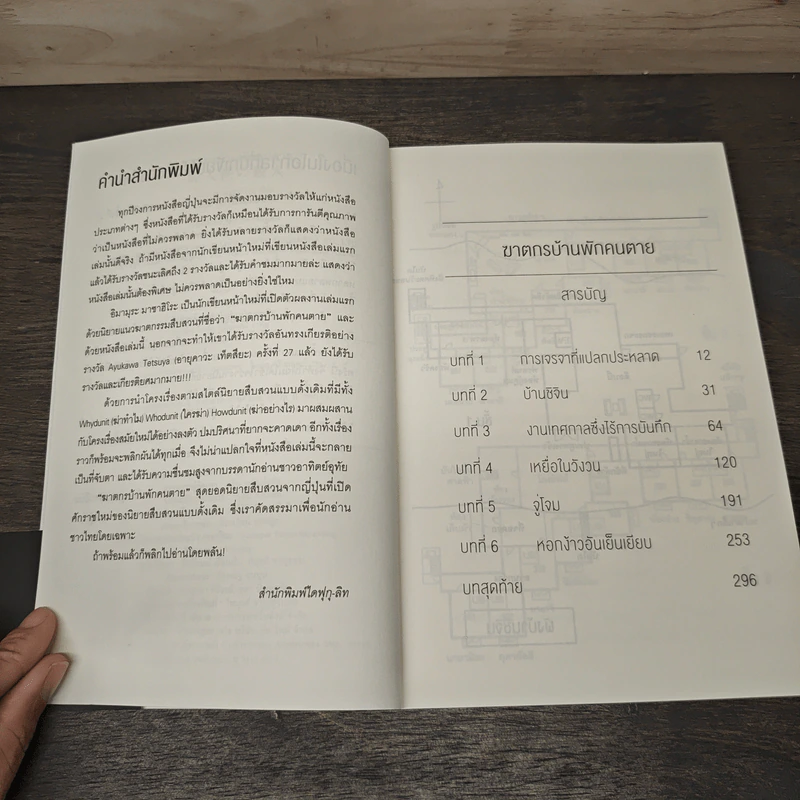 คำนำสำนักพิมพ์
ทุกปีวงการหนังสือญี่ปุ่นจะมีการจัดงานมอบรางวัลให้แก่หนังสือ
ประเภทต่างๆ ซึ่งหนังสือที่ได้รับรางวัลก็เหมือนได้รับการการันตีคุณภาพ
ว่าเป็นหนังสือที่ไม่ควรพลาด ยิ่งได้รับหลายรางวัลก็แสดงว่าหนังสือ
เล่มนั้นดีจริง ถ้ามีหนังสือจากนักเขียนหน้าใหม่ที่เขียนหนังสือเล่มแรก
แล้วได้รับรางวัลชนะเลิศถึง 2 รางวัลและได้รับคำชมมากมายล่ะ แสดงว่า
หนังสือเล่มนั้นต้องพิเศษ ไม่ควรพลาดเป็นอย่างยิ่งใช่ไหม
อิมามุระ มาซาฮิโระ เป็นนักเขียนหน้าใหม่ที่เปิดตัวผลงานเล่มแรก
ด้วยนิยายแนวฆาตกรรมสืบสวนที่ชื่อว่า "ฆาตกรบ้านพักคนตาย" และ
ด้วยหนังสือเล่มนี้ นอกจากจะทำให้เขาได้รับรางวัลอันทรงเกียรติอย่าง
รางวัล Ayukawa Tetsuya (อายุคาวะ เท็ตสึยะ) ครั้งที่ 27 แล้ว ยังได้รับ
รางวัลและเกียรติยศมากมาย!!!
ด้วยการนำโครงเรื่องตามสไตล์นิยายสืบสวนแบบดั้งเดิมที่มีทั้ง
Whydunit (ฆ่าทำไม) Whodunit (ใครฆ่า) Howdunit (ฆ่าอย่างไร) มาผสมผสาน
กับโครงเรื่องสมัยใหม่ได้อย่างลงตัว ปมปริศนาที่ยากจะคาดเดา อีกทั้งเรื่อง
ราวก็พร้อมจะพลิกผันได้ทุกเมื่อ จึงไม่น่าแปลกใจที่หนังสือเล่มนี้จะกลาย
เป็นที่จับตา และได้รับความชื่นชมสูงจากบรรดานักอ่านชาวอาทิตย์อุทัย
"ฆาตกรบ้านพักคนตาย" สุดยอดนิยายสืบสวนจากญี่ปุ่นที่เปิด
ศักราชใหม่ของนิยายสืบสวนแบบดั้งเดิม ซึ่งเราคัดสรรมาเพื่อนักอ่าน
ชาวไทยโดยเฉพาะ
ถ้าพร้อมแล้วก็พลิกไปอ่านโดยพลัน!
สำนักพิมพ์ไดฟุกุ-ลิท
ฆาตกรบ้านพักคนตาย
สารบัญ
บทที่ 1 การเจรจาที่แปลกประหลาด 12
บทที่ 2 บ้านชิจิน 31
บทที่ 3 งานเทศกาลซึ่งไร้การบันทึก 64
บทที่ 4 เหยื่อในวังวน 120
บทที่ 5 จู่โจม 191
บทที่ 6 หอกง้าวอันเย็นเยียบ 253
บทสุดท้าย 296
ผังบ้านชิจิน